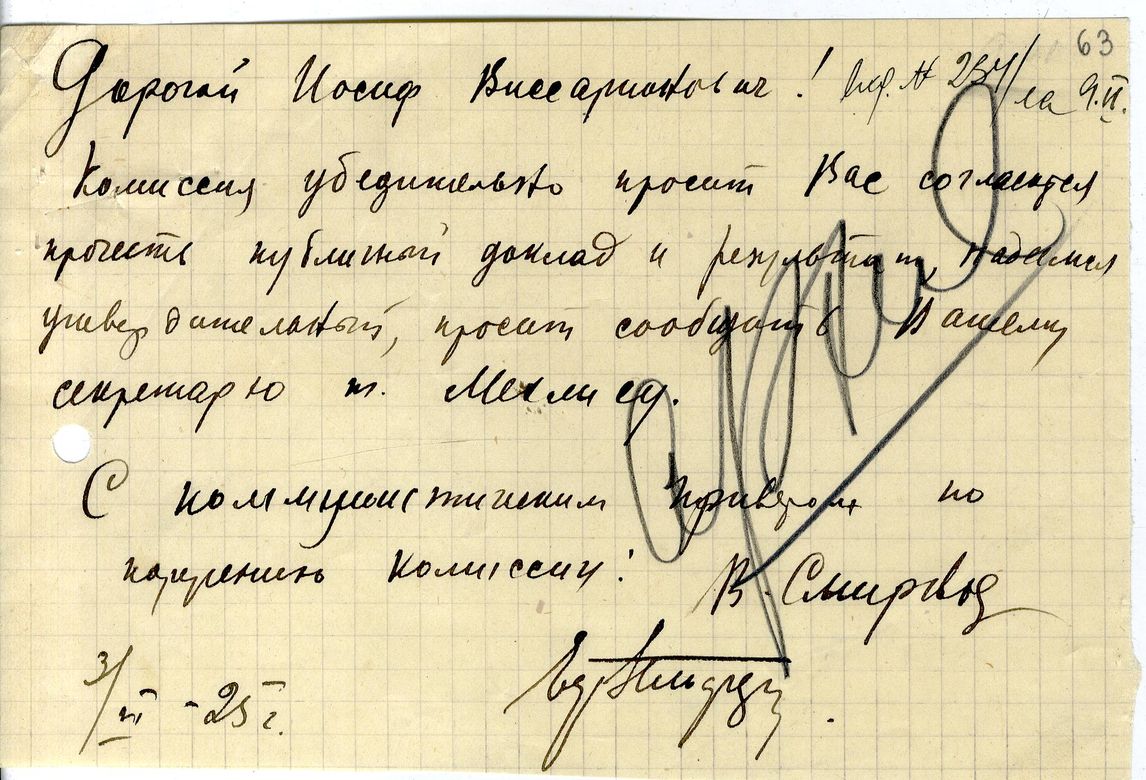 63
Дорогой Иосиф Виссарионович! № 234/ 9.II.
Комиссия убедительно просит Вас согласится
прочесть публичный доклад и результат, надеемся
утвердительный, просит сообщить Вашему
секретарю т. Мехлису.
С коммунистическим приветом по
поручению Комиссии:
В. Смирнов
3/II - 25 г.